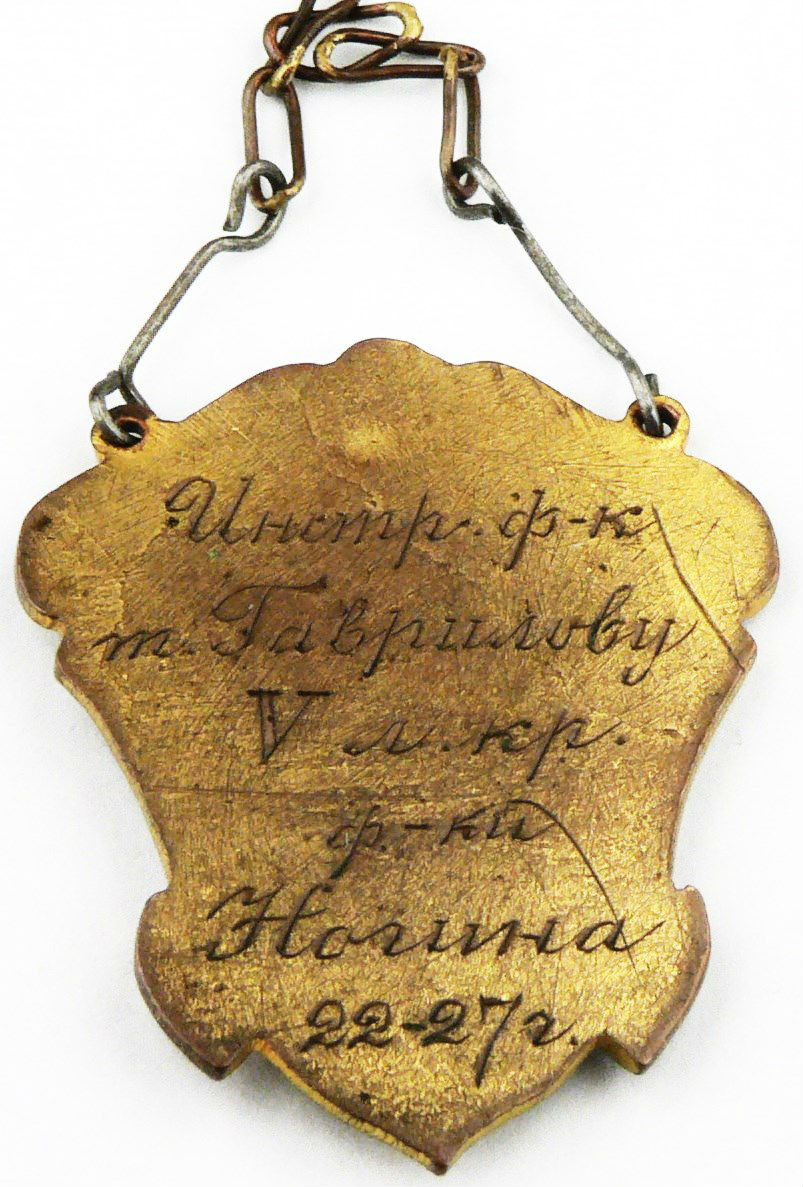 Инстр. ф-к
т. Гаврилову
V л. кр.
ф.-ки
Ногина
22-27 г.